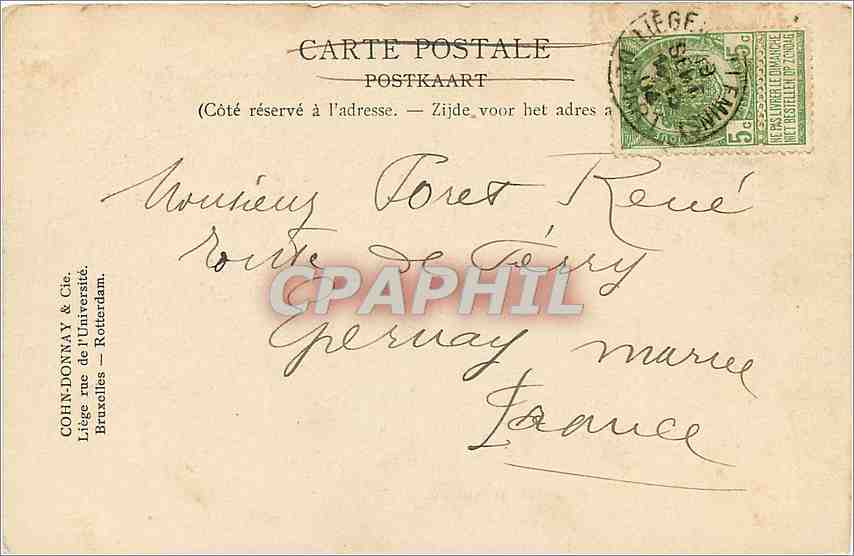 CARTE POSTALE
POSTKAART
(Côté réservé à l'adresse. — Zijde voor het adres a
LIÉGE
5c 5c
NE PAS LIVRER LE DIMANCHE
NIET BESTELLEN OP ZONDAG
Monsieur Foret René
Route de
CPAPHIL
Épernay marne
France
COHN-DONNAY & Cie.
Liège rue de l'Université.
Bruxelles — Rotterdam.